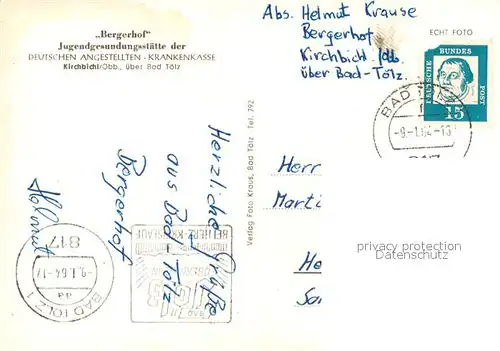 „Bergerhof"
Jugendgesundungsstätte der
DEUTSCHEN ANGESTELLTEN - KRANKENKASSE
Kirchbichl/Obb., über Bad Tölz
Abs. Helmut Krause
Bergerhof
Kirchbichl /Obb.
über Bad-Tölz.
ECHT FOTO
DEUTSCHE BUNDES POST
15
BAD TÖLZ 1
-9.-1.64-18
817
Herzliche Grüße
aus Bad Tölz
Bergerhof
Helmut
Verlag Foto Kraus, Bad Tölz Tel. 792
Herr
Marti
privacy protection
watermark
BAD TÖLZ 1
-9.1.64-17
aa
817
BAD
BEI HERZ-KREISLAUF